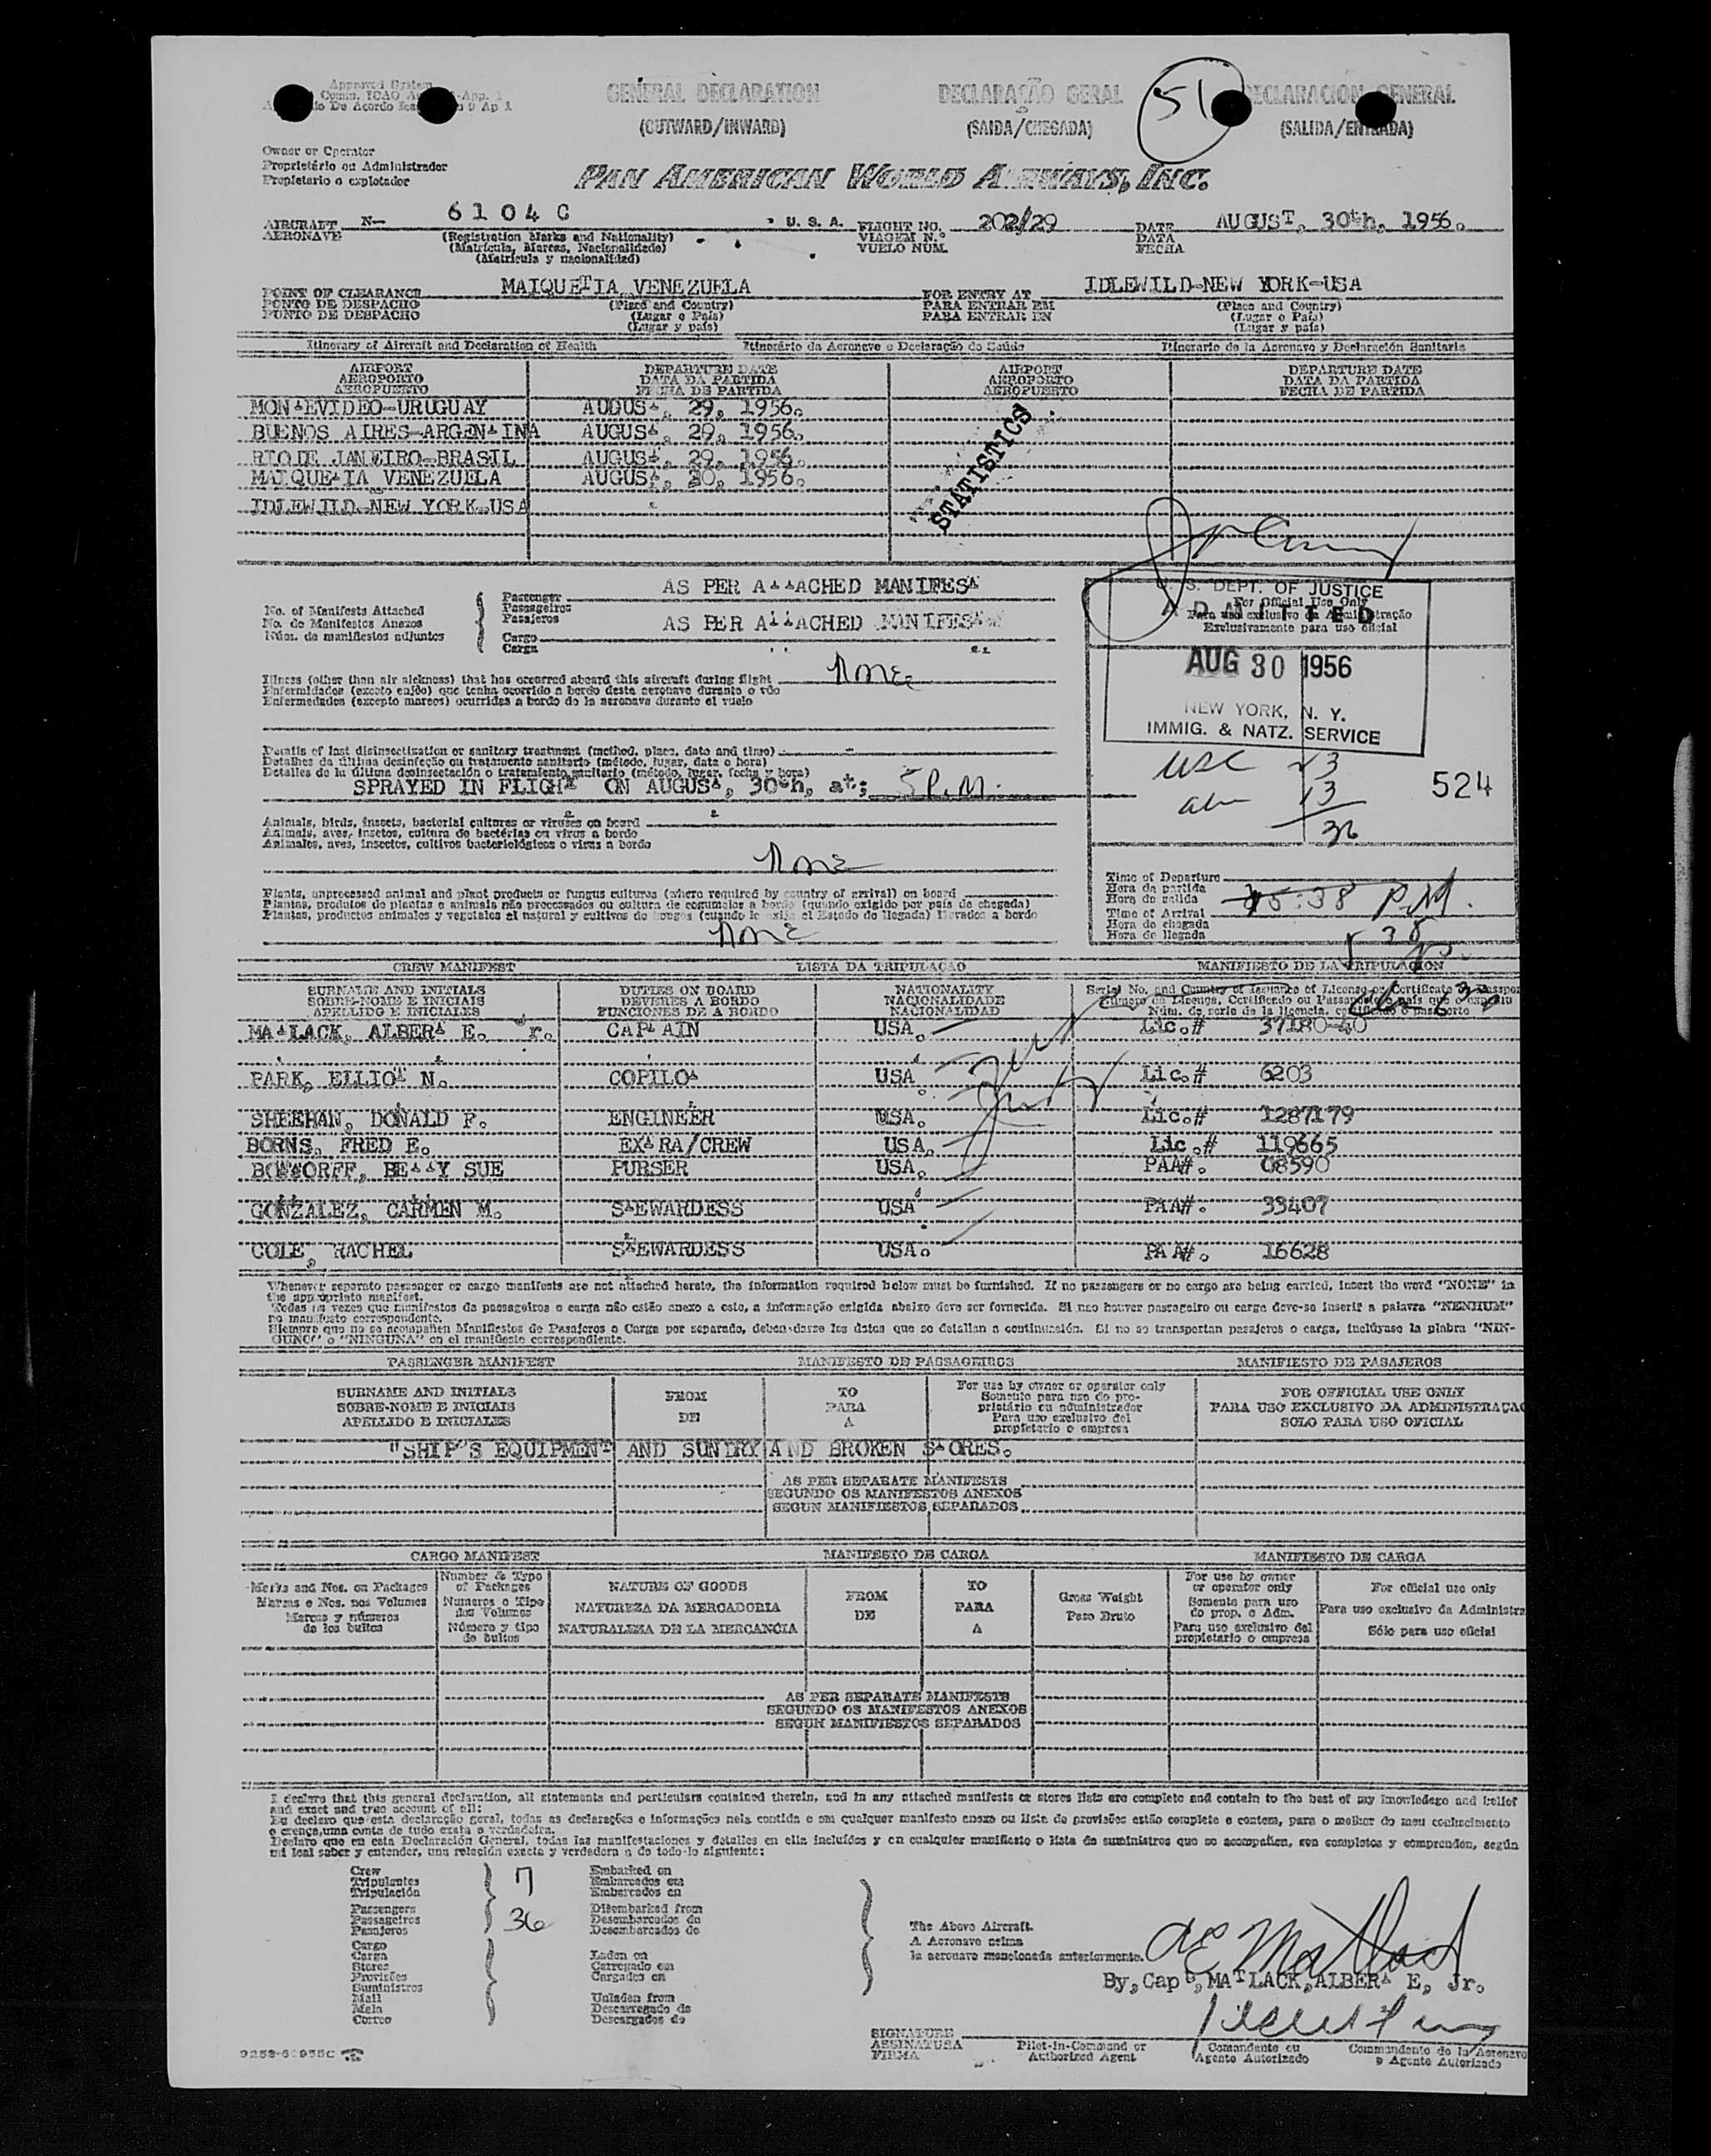 Approved System
GENERAL DECLARATION
(OUTWARD/INWARD)
DECLARAÇÃO GERAL
(SAIDA/CHEGADA)
51
DECLARACION GENERAL
(SALIDA/ENTRADA)
Owner or Operator
Proprietério ou Administrador
Propietario o explotador
PAN AMERICAN WORLD AIRWAYS, INC.
AIRCRAFT N- 6104C U.S.A. FLIGHT NO. 202/29 DATE AUGUST, 30th, 1956.
AERONAVE (Registration Marks and Nationality) VIAGEM N.º DATA
(Matricula, Marcas, Nacionalidade) VUELO NUM. FECHA
(Matricula y nacionalidad)
POINT OF CLEARANCE MAIQUETIA VENEZUELA FOR ENTRY AT IDLEWILD-NEW YORK-USA
PONTO DE DESPACHO (Place and Country) PARA ENTRAR EM (Place and Country)
PUNTO DE DESPACHO (Lugar e País) PARA ENTRAR EN (Lugar e País)
(Lugar y país) (Lugar y país)
Itinerary of Aircraft and Declaration of Health Itinerário da Aeronave e Declaração de Saúde Itinerario de la Aeronave y Declaración Sanitaria
AIRPORT DEPARTURE DATE AIRPORT DEPARTURE DATE
AEROPORTO DATA DA PARTIDA AEROPORTO DATA DA PARTIDA
AEROPUERTO FECHA DE PARTIDA AEROPUERTO FECHA DE PARTIDA
MONTEVIDEO-URUGUAY AUGUST, 29, 1956.
BUENOS AIRES-ARGENTINA AUGUST, 29, 1956.
RIO DE JANEIRO-BRASIL AUGUST, 29, 1956.
MAIQUETIA VENEZUELA AUGUST, 30, 1956.
IDLEWILD-NEW YORK-USA
STATISTICS
No. of Manifests Attached
No. de Manifestos Anexos
Núm. de manifiestos adjuntos
Passenger AS PER ATTACHED MANIFEST
Passageiros
Pasajeros
Cargo AS PER ATTACHED MANIFEST
Carga
U.S. DEPT. OF JUSTICE
For Official Use Only
ADMITTED
Para uso exclusivo da Administração
Exclusivamente para uso oficial
AUG 30 1956
NEW YORK, N. Y.
IMMIG. & NATZ. SERVICE
USC 23
13
36
524
Illness (other than air sickness) that has occurred aboard this aircraft during flight None
Enfermidades (exceto enjôo) que tenha ocorrido a bordo desta aeronave durante o vôo
Enfermedades (excepto mareos) ocurridas a bordo de la aeronave durante el vuelo
Details of last disinsectization or sanitary treatment (method, place, date and time)
Detalhes da última desinfeção ou tratamento sanitario (método, lugar, data e hora)
Detalles de la última desinsectación o tratamiento sanitario (método, lugar, fecha y hora)
SPRAYED IN FLIGHT ON AUGUST, 30th, at; 5 P.M.
Animals, birds, insects, bacterial cultures or viruses on board
Animais, aves, insetos, cultura de bactérias ou virus a bordo
Animales, aves, insectos, cultivos bacteriológicos o virus a bordo
None
Plants, unprocessed animal and plant products or fungus cultures (where required by country of arrival) on board
Plantas, produtos de plantas e animais não processados ou cultura de cogumelos a bordo (quando exigido por país de chegada)
Plantas, productos animales y vegetales al natural y cultivos de hongos (cuando lo exija el Estado de llegada) llevados a bordo
None
Time of Departure
Hora da partida
Hora de salida
5:38 P.M.
Time of Arrival
Hora da chegada
Hora de llegada
5 38
CREW MANIFEST LISTA DA TRIPULAÇÃO MANIFIESTO DE LA TRIPULACION
SURNAME AND INITIALS DUTIES ON BOARD NATIONALITY Serial No. and Country of Issuance of License or Certificate or Passport
SOBRE-NOME E INICIAIS DEVERES A BORDO NACIONALIDADE
APELLIDO E INICIALES FUNCIONES DE A BORDO NACIONALIDAD Núm. de serie de la licencia, certificado o pasaporte
MATLACK, ALBERT E. Jr. CAPTAIN USA. Lic.# 37180-40
PARK, ELLIOT N. COPILOT USA. Lic.# 6203
SHEEHAN, DONALD F. ENGINEER USA. Lic.# 1287179
BORNS, FRED E. EXTRA/CREW USA. Lic.# 119665
BOTTORFF, BETTY SUE PURSER USA. PAA#. 08590
GONZALEZ, CARMEN M. STEWARDESS USA. PAA#. 33407
COLE, RACHEL STEWARDESS USA. PAA#. 16628
Whenever separate passenger or cargo manifests are not attached hereto, the information required below must be furnished. If no passengers or no cargo are being carried, insert the word "NONE" in
the appropriate manifest.
Todas as vezes que manifestos de passageiros e carga não estão anexo a este, a informação exigida abaixo deve ser fornecida. Si nao houver passageiro ou carga deve-se inserir a palavra "NENHUM"
no manifesto correspondente.
Siempre que no se acompañen Manifiestos de Pasajeros o Carga por separado, deben darse los datos que se detallan a continuación. Si no se transportan pasajeros o carga, inclúyase la plabra "NIN-
GUNO" o "NINGUNA" en el manifiesto correspondiente.
PASSENGER MANIFEST MANIFESTO DE PASSAGEIROS MANIFIESTO DE PASAJEROS
SURNAME AND INITIALS FROM TO For use by owner or operator only FOR OFFICIAL USE ONLY
SOBRE-NOME E INICIAIS DE PARA Somente para uso do pro- PARA USO EXCLUSIVO DA ADMINISTRAÇAO
APELLIDO E INICIALES A prietário ou administrador SOLO PARA USO OFICIAL
Para uso exclusivo del
propietario o empresa
"SHIP'S EQUIPMENT AND SUNDRY AND BROKEN STORES.
AS PER SEPARATE MANIFESTS
SEGUNDO OS MANIFESTOS ANEXOS
SEGUN MANIFIESTOS SEPARADOS
CARGO MANIFEST MANIFESTO DE CARGA MANIFIESTO DE CARGA
Marks and Nos. on Packages Number & Type of Packages NATURE OF GOODS FROM TO Gross Weight For use by owner or operator only For official use only
Marcas e Nos. nos Volumes Numeros e Tipo dos Volumes NATUREZA DA MERCADORIA DE PARA Peso Bruto Somente para uso do prop. e Adm. Para uso exclusivo da Administra
Marcas y números de los bultos Número y tipo de bultos NATURALEZA DE LA MERCANCIA A Para uso exclusivo del propietario o empresa Sólo para uso oficial
AS PER SEPARATE MANIFESTS
SEGUNDO OS MANIFESTOS ANEXOS
SEGUN MANIFIESTOS SEPARADOS
I declare that this general declaration, all statements and particulars contained therein, and in any attached manifests or stores lists are complete and contain to the best of my knowledge and belief
and exact and true account of all:
Eu declaro que esta declaração geral, todas as declarações e informações nela contida e em qualquer manifesto anexo ou lista de provisões estão complete e contem, para o melhor do meu conhecimento
e crença, uma conta de tudo exata e verdadeira.
Declaro que en esta Declaración General, todas las manifestaciones y detalles en ella incluídos y en cualquier manifiesto o lista de suministros que se acompañen, son completos y comprenden, según
mi leal saber y entender, una relación exacta y verdadera a de todo lo siguiente:
Crew 7 Embarked on
Tripulantes Embarcados em
Tripulación Embarcados en
Passengers 36 Disembarked from
Passageiros Desembarcados de
Pasajeros Desembarcados de
Cargo
Carga Laden on
Stores Carregado em
Provisões Cargados en
Suministros
Mail Unladen from
Mala Descarregado de
Correo Descargados de
The Above Aircraft.
A Aeronave acima
la aeronave mencionada anteriormente.
AE Matlack
By, Capt, MATLACK, ALBERT E, Jr.
SIGNATURE
ASSINATURA Pilot-in-Command or Comandante ou Commandante de la Aeronave
FIRMA Authorized Agent Agente Autorizado o Agente Autorizado